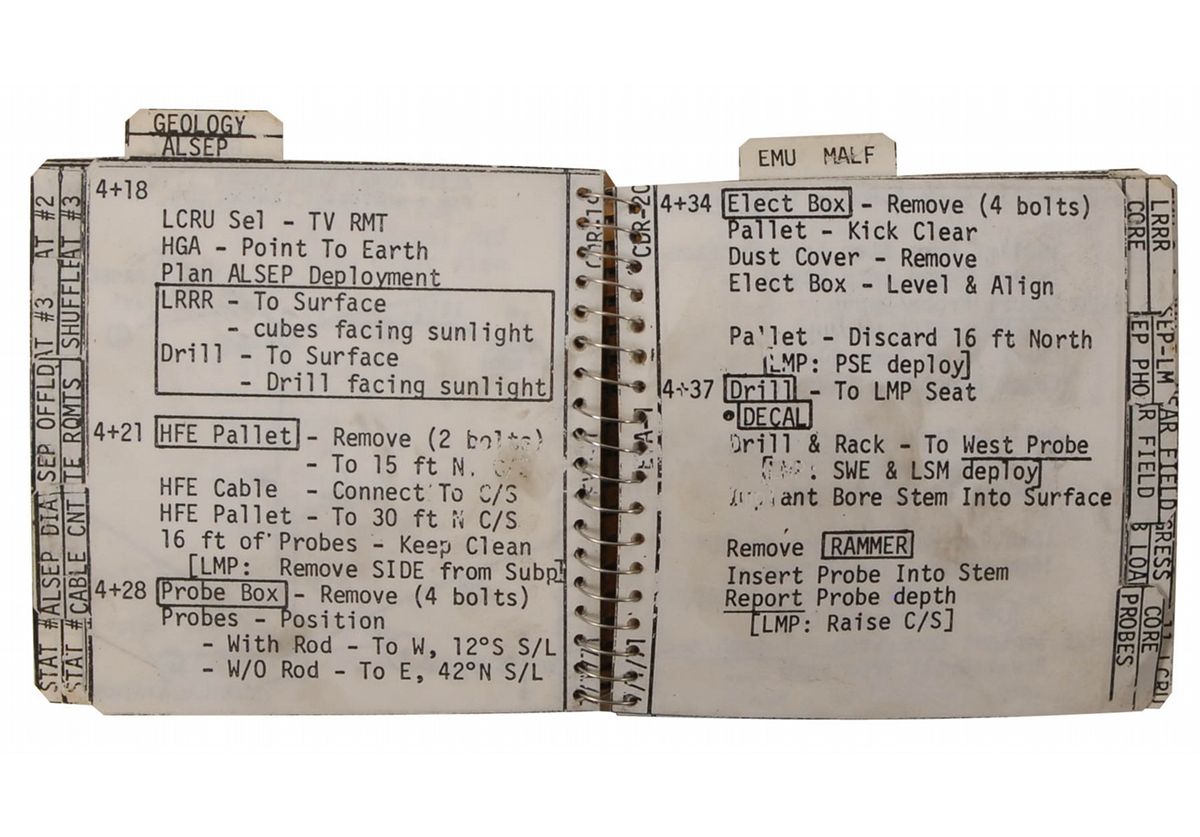 GEOLOGY
ALSEP
4+18
LCRU Sel - TV RMT
HGA - Point To Earth
Plan ALSEP Deployment
LRRR - To Surface
- cubes facing sunlight
Drill - To Surface
- Drill facing sunlight
4+21 HFE Pallet - Remove (2 bolts)
- To 15 ft N.
HFE Cable - Connect To C/S
HFE Pallet - To 30 ft N C/S
16 ft of Probes - Keep Clean
[LMP: Remove SIDE from Subp]
4+28 Probe Box - Remove (4 bolts)
Probes - Position
- With Rod - To W, 12°S S/L
- W/O Rod - To E, 42°N S/L
AT #2
AT #3
SEP OFFLD
ALSEP DIA
STAT #
AT #3
SHUFFL
TIE RQMTS
CABLE CNT
STAT #
EMU MALF
4+34 Elect Box - Remove (4 bolts)
Pallet - Kick Clear
Dust Cover - Remove
Elect Box - Level & Align
Pallet - Discard 16 ft North
[LMP: PSE deploy]
4+37 Drill - To LMP Seat
• DECAL
Drill & Rack - To West Probe
: SWE & LSM deploy]
Bore Stem Into Surface
Remove RAMMER
Insert Probe Into Stem
Report Probe depth
[LMP: Raise C/S]
CORE
EP PHO
R FIELD
B LOA
PROBES
LRRR
SEP-LM
AR FIELD
CORE
LCRU